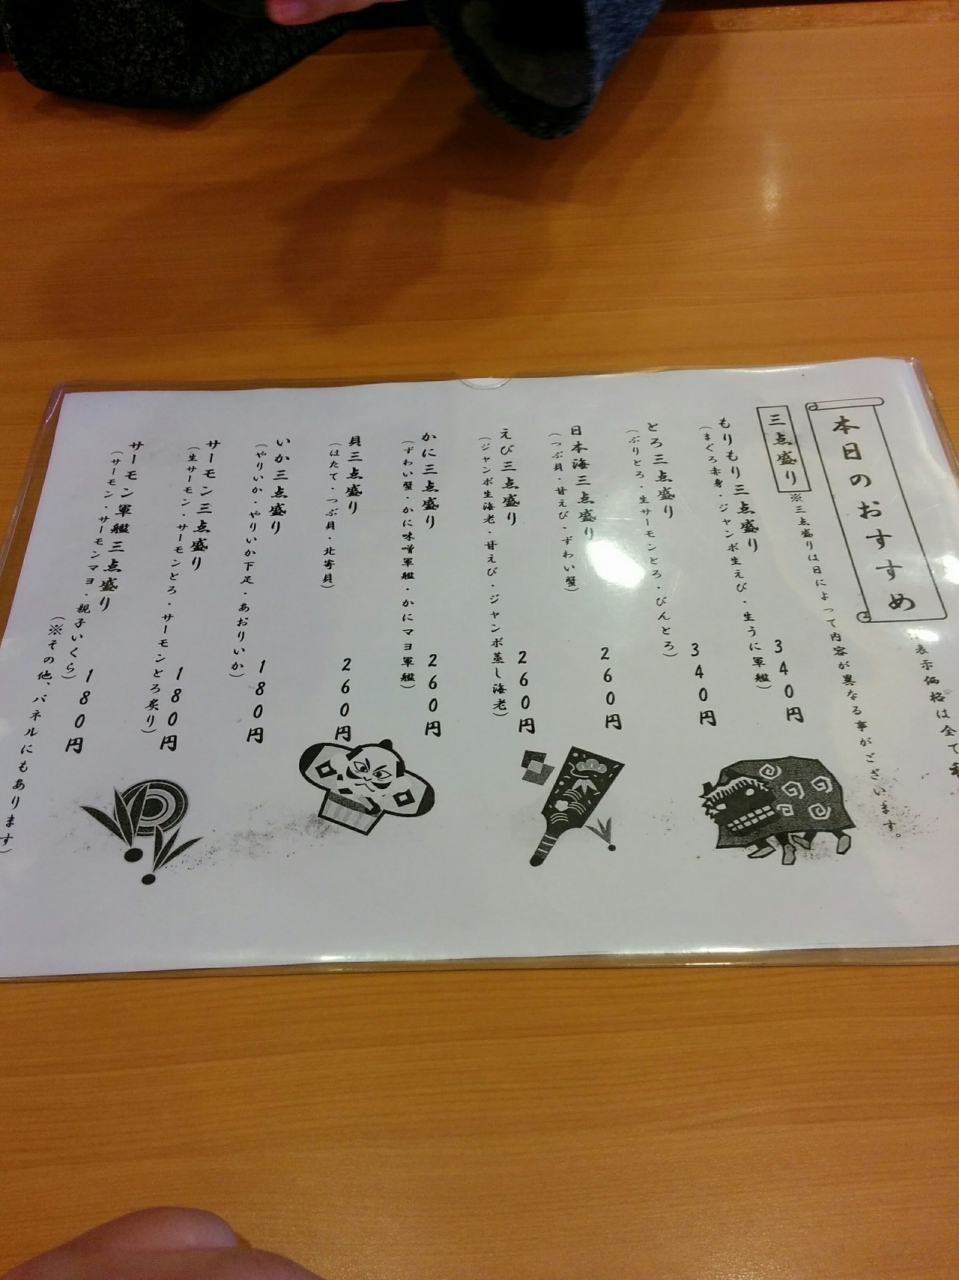 表示価格は全て
本日のおすすめ
三点盛り
※三点盛りは日によって内容が異なる事がございます。
もりもり三点盛り 340円
(まぐろ赤身・ジャンボ生えび・生うに軍艦)
とろ三点盛り 340円
(ぶりとろ・生サーモンとろ・びんとろ)
日本海三点盛り 260円
(つぶ貝・甘えび・ずわい蟹)
えび三点盛り 260円
(ジャンボ生海老・甘えび・ジャンボ蒸し海老)
かに三点盛り 260円
(ずわい蟹・かに味噌軍艦・かにマヨ軍艦)
貝三点盛り 260円
(ほたて・つぶ貝・北寄貝)
いか三点盛り 180円
(やりいか・やりいか下足・あおりいか)
サーモン三点盛り 180円
(生サーモン・サーモンとろ・サーモンとろ炙り)
サーモン軍艦三点盛り 180円
(サーモン・サーモンマヨ・親子いくら)
(※その他、パネルにもあります)